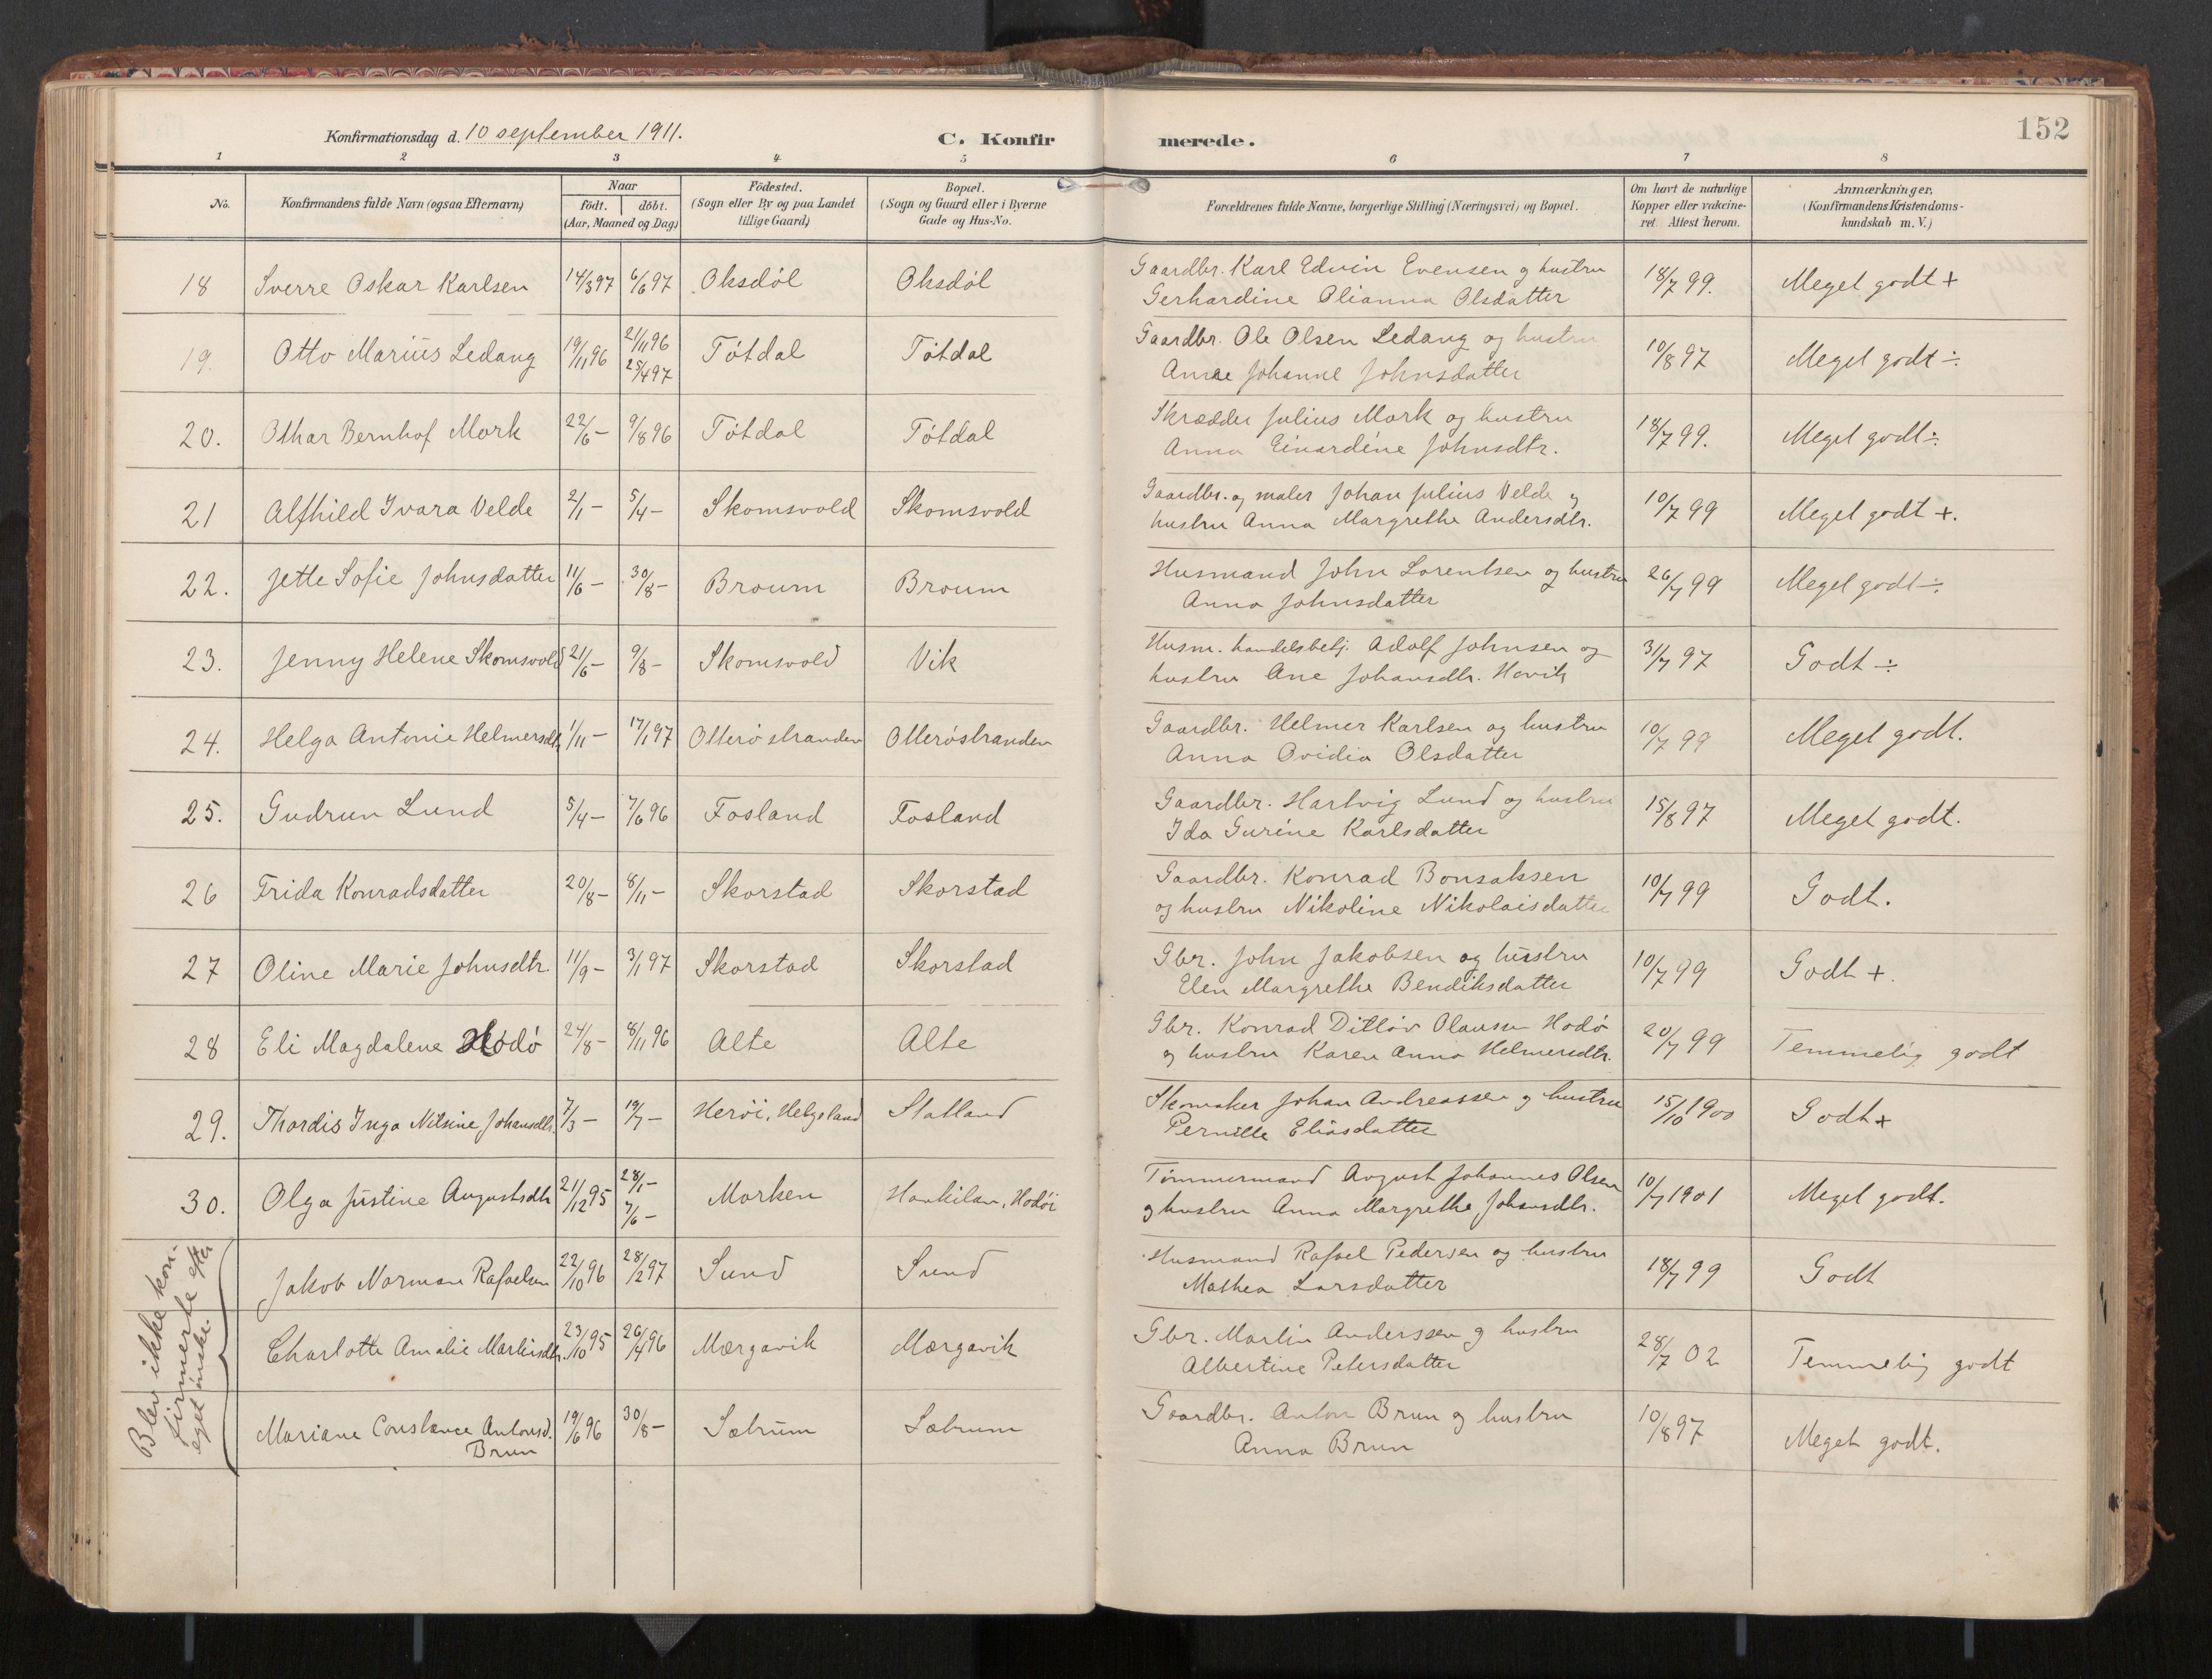 152
Konfirmationsdag d. 10 september 1911. C. Konfirmerede.
1 2 3 4 5 6 7 8
No. Konfirmandens fulde Navn (ogsaa Efternavn) Naar født. døbt. (Aar, Maaned og Dag) Fødested. (Sogn eller By og paa Landet tillige Gaard) Bopæl. (Sogn og Gaard eller i Byerne Gade og Hus-No. Forældrenes fulde Navne, borgerlige Stilling (Næringsvei) og Bopæl. Om havt de naturlige Kopper eller vakcineret. Attest herom. Anmærkninger. (Konfirmandens Kristendomskundskab m. V.)
18 Sverre Oskar Karlsen 14/3 97 6/6 97 Oksdøl Oksdøl Gaardbr. Karl Edvin Evensen og hustru Gerhardine Olianna Olsdatter 18/7 99. Meget godt +
19. Otto Marius Ledang 19/11 96 21/11 96 25/4 97 Tøtdal Tøtdal Gaardbr. Ole Olsen Ledang og hustru Anne Johanne Johnsdatter 10/8 97 Meget godt ÷
20. Othar Bernhof Mork 22/6 - 9/8 96 Tøtdal Tøtdal Skrædder Julius Mork og hustru Anna Einardine Johnsdtr. 18/7 99. Meget godt ÷
21 Alfhild Ivara Velde 2/1 - 5/4 - Skomsvold Skomsvold Gaardbr. og maler Johan Julius Velde og hustru Anna Margrethe Andersdtr. 10/7 99 Meget godt +.
22. Jette Sofie Johnsdatter 11/6 - 30/8 - Broum Broum Husmand John Lorentsen og hustru Anna Johnsdatter 26/7 99 Meget godt ÷
23. Jenny Helene Skomsvold 21/6 - 9/8 - Skomsvold Vik Husm. handelsbetj. Adolf Johnsen og hustru Ane Johansdtr. Hovik 31/7 97 Godt ÷
24. Helga Antonie Helmersdt. 1/11 - 17/1 97 Otterøstranden Otterøstranden Gaardbr. Helmer Karlsen og hustru Anna Ovidia Olsdatter 10/7 99 Meget godt.
25. Gudrun Lund 5/4 - 7/6 96 Fosland Fosland Gaardbr. Hartvig Lund og hustru Ida Gurine Karlsdatter 15/8 97 Meget godt.
26 Frida Konradsdatter 20/8 - 8/11 - Skorstad Skorstad Gaardbr. Konrad Bonsaksen og hustru Nikoline Nikolaisdatter 10/7 99 Godt.
27 Oline Marie Johnsdtr. 11/9 - 3/1 97 Skorstad Skorstad Gbr. John Jakobsen og hustru Elen Margrethe Bendiksdatter 10/7 99 Godt +.
28 Eli Magdalene Hodø 24/8 - 8/11 96 Alte Alte Gbr. Konrad Ditløv Olaussen Hodø og hustru Karen Anna Helmersdtr. 20/7 99 Temmelig godt
29. Thordis Inga Nilsine Johansdtr. 7/3 - 19/7 - Herøi, Helgeland Statland Skomaker Johan Andreassen og hustru Pernille Eliasdatter 15/10 1900 Godt +
30. Olga Justine Augustsdtr 21/12 95 28/1 - 7/6 - Morken Havikilan, Hodøi Tømmermand August Johannes Olsen og hustru Anna Margrethe Johansdtr. 10/7 1901 Meget godt.
Blev ikke konfirmerte efter eget ønske.
Jakob Norman Rafaelsen 22/10 96 28/2 97 Sund Sund Husmand Rafael Pedersen og hustru Mathea Larsdatter 18/7 99 Godt
Charlotte Amalie Martinsdtr. 23/10 95 26/4 96 Mærgavik Mærgavik Gbr. Martin Anderssen og hustru Albertine Petersdatter 28/7 02 Temmelig godt
Mariane Constance Antonsd. Brun 19/6 96 30/8 - Sætrum Sætrum Gaardbr. Anton Brun og hustru Anna Brun 10/8 97 Meget godt.